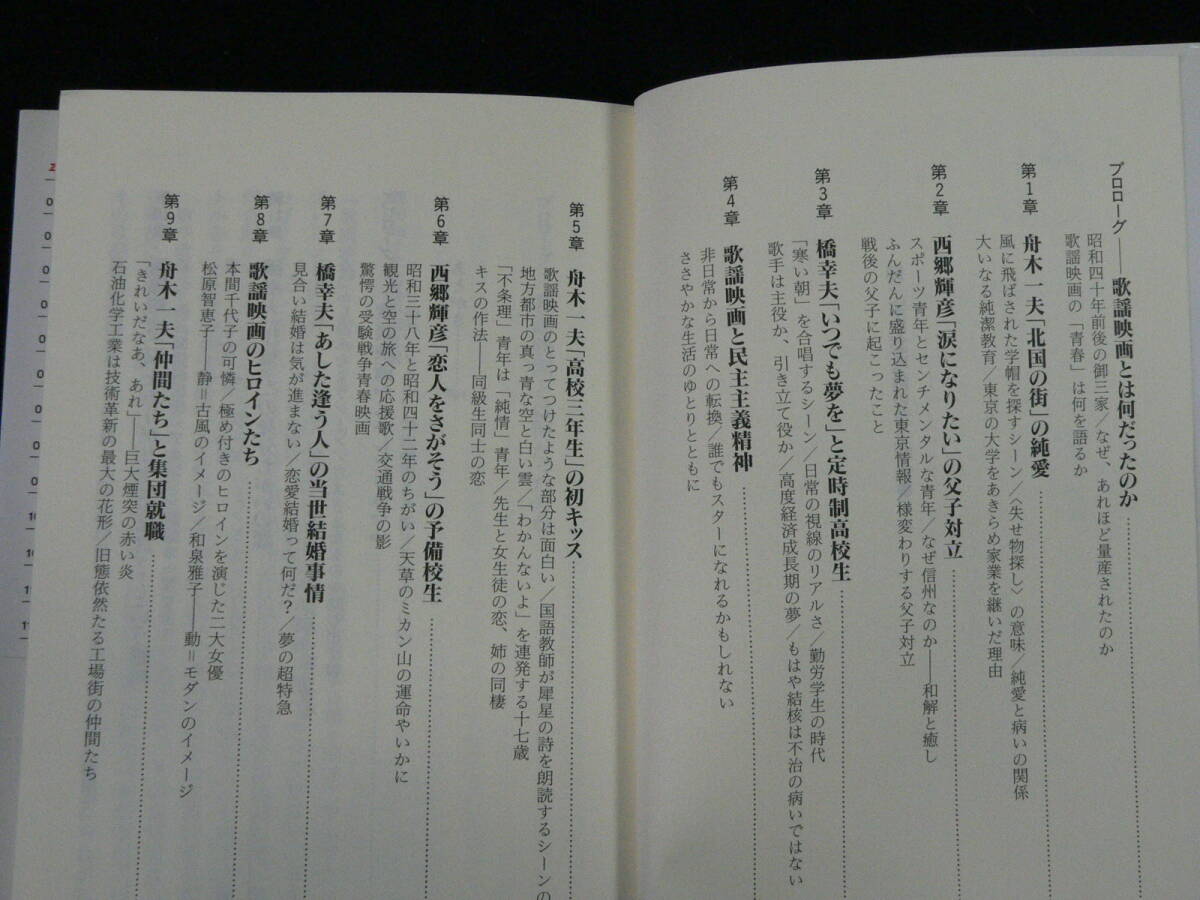 プロローグ――歌謡映画とは何だったのか
昭和四十年前後の御三家/なぜ、あれほど量産されたのか
歌謡映画の「青春」は何を語るか
第1章 舟木一夫「北国の街」の純愛
風に飛ばされた学帽を探すシーン/〈失せ物探し〉の意味/純愛と病いの関係
大いなる純潔教育/東京の大学をあきらめ家業を継いだ理由
第2章 西郷輝彦「涙になりたい」の父子対立
スポーツ青年とセンチメンタルな青年/なぜ信州なのか――和解と癒し
ふんだんに盛り込まれた東京情報/様変わりする父子対立
戦後の父子に起こったこと
第3章 橋幸夫「いつでも夢を」と定時制高校生
「寒い朝」を合唱するシーン/日常の視線のリアルさ/勤労学生の時代
歌手は主役か、引き立て役か/高度経済成長期の夢/もはや結核は不治の病いではない
第4章 歌謡映画と民主主義精神
非日常から日常への転換/誰でもスターになれるかもしれない
ささやかな生活のゆとりとともに
第5章 舟木一夫「高校三年生」の初キッス
歌謡映画のとってつけたような部分は面白い/国語教師が犀星の詩を朗読するシーンの
地方都市の真っ青な空と白い雲/「わかんないよ」を連発する十七歳
「不条理」青年は「純情」青年/先生と女生徒の恋、姉の同棲
キスの作法――同級生同士の恋
第6章 西郷輝彦「恋人をさがそう」の予備校生
昭和三十八年と昭和四十二年のちがい/天草のミカン山の運命やいかに
観光と空の旅への応援歌/交通戦争の影
驚愕の受験戦争青春映画
第7章 橋幸夫「あした逢う人」の当世結婚事情
見合い結婚は気が進まない/恋愛結婚って何だ?/夢の超特急
第8章 歌謡映画のヒロインたち
本間千代子の可憐/極め付きのヒロインを演じた二大女優
松原智恵子――静=古風のイメージ/和泉雅子――動=モダンのイメージ
第9章 舟木一夫「仲間たち」と集団就職
「きれいだなあ、あれ」――巨大煙突の赤い炎
石油化学工業は技術革新の最大の花形/旧態依然たる工場街の仲間たち